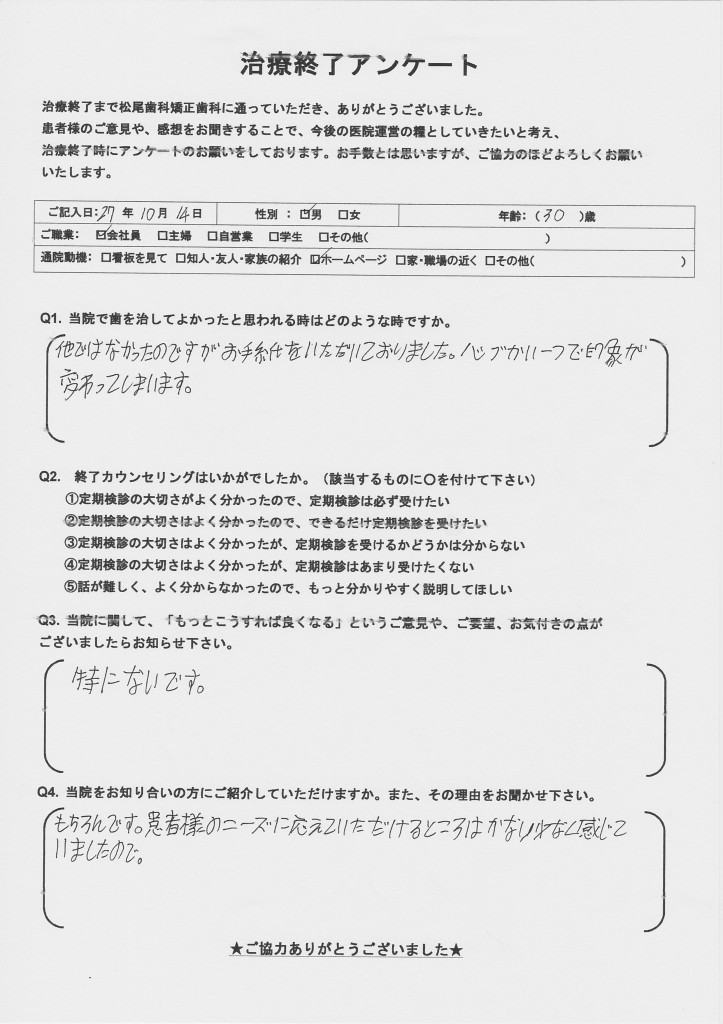 治療終了アンケート
治療終了まで松尾歯科矯正歯科に通っていただき、ありがとうございました。
患者様のご意見や、感想をお聞きすることで、今後の医院運営の糧としていきたいと考え、
治療終了時にアンケートのお願いをしております。お手数とは思いますが、ご協力のほどよろしくお願い
いたします。
ご記入日:27年10月14日 性別 : ☑男 □女 年齢:(30)歳
ご職業: ☑会社員 □主婦 □自営業 □学生 □その他( )
通院動機: □看板を見て □知人・友人・家族の紹介 ☑ホームページ □家・職場の近く □その他( )
Q1. 当院で歯を治してよかったと思われる時はどのような時ですか。
他ではなかったのですがお手紙をいただいておりました。ハンコかい一つで印象が
変わってしまいます。
Q2. 終了カウンセリングはいかがでしたか。(該当するものに〇を付けて下さい)
①定期検診の大切さがよく分かったので、定期検診は必ず受けたい
②定期検診の大切さはよく分かったので、できるだけ定期検診を受けたい
③定期検診の大切さはよく分かったが、定期検診を受けるかどうかは分からない
④定期検診の大切さはよく分かったが、定期検診はあまり受けたくない
⑤話が難しく、よく分からなかったので、もっと分かりやすく説明してほしい
Q3. 当院に関して、「もっとこうすれば良くなる」というご意見や、ご要望、お気付きの点が
ございましたらお知らせ下さい。
特にないです。
Q4. 当院をお知り合いの方にご紹介していただけますか。また、その理由をお聞かせ下さい。
もちろんです。患者様のニーズに応えていただけるところはかなり少なく感じて
いましたので。
★ご協力ありがとうございました★